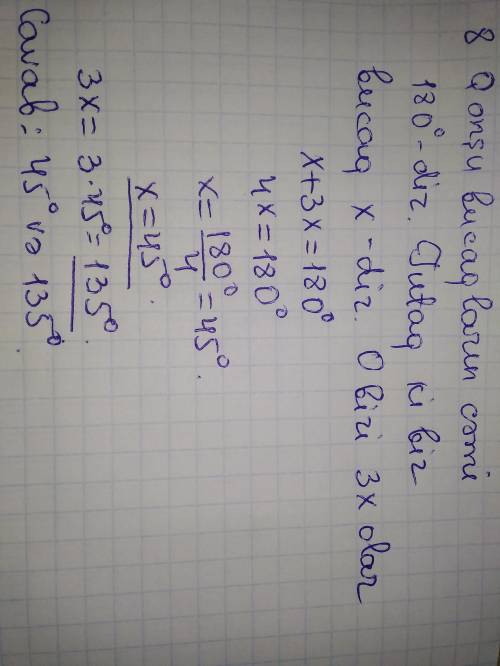 8 Qonşu bucaqların cəmi
180°-diz. Tutaq ki biz
bucaq x-diz. O bizi 3x olaz
x+3x=180°
4x=180°
x=180°/4=45°.
x=45°.
3x=3·45°=135°.
Cavab: 45° və 135°.